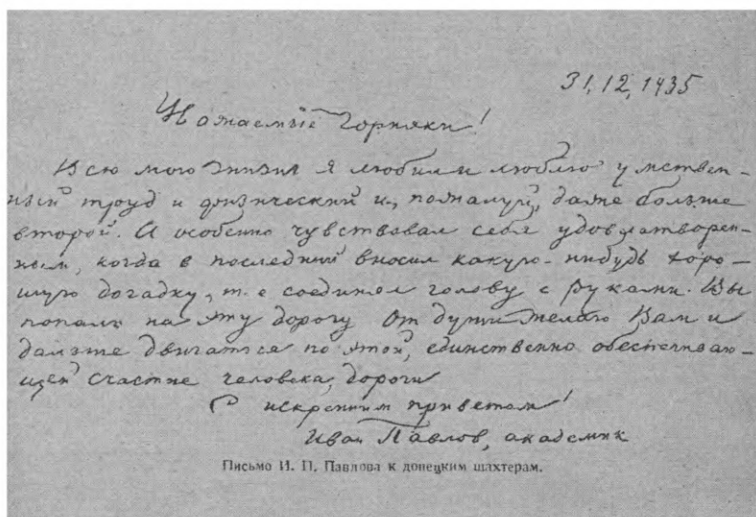 31, 12, 1935
Уважаемые Горняки!
Всю мою жизнь я любил и люблю умствен-
ный труд и физический и, пожалуй, даже больше
второй. А особенно чувствовал себя удовлетворен-
ным, когда в последний вносил какую-нибудь хоро-
шую догадку, т. е соединял голову с руками. Вы
попали на эту дорогу От души желаю Вам и
дальше двигаться по этой, единственно обеспечиваю-
щей счастие человека, дороги
С искренним приветом!
Иван Павлов, академик
Письмо И. П. Павлова к донецким шахтерам.